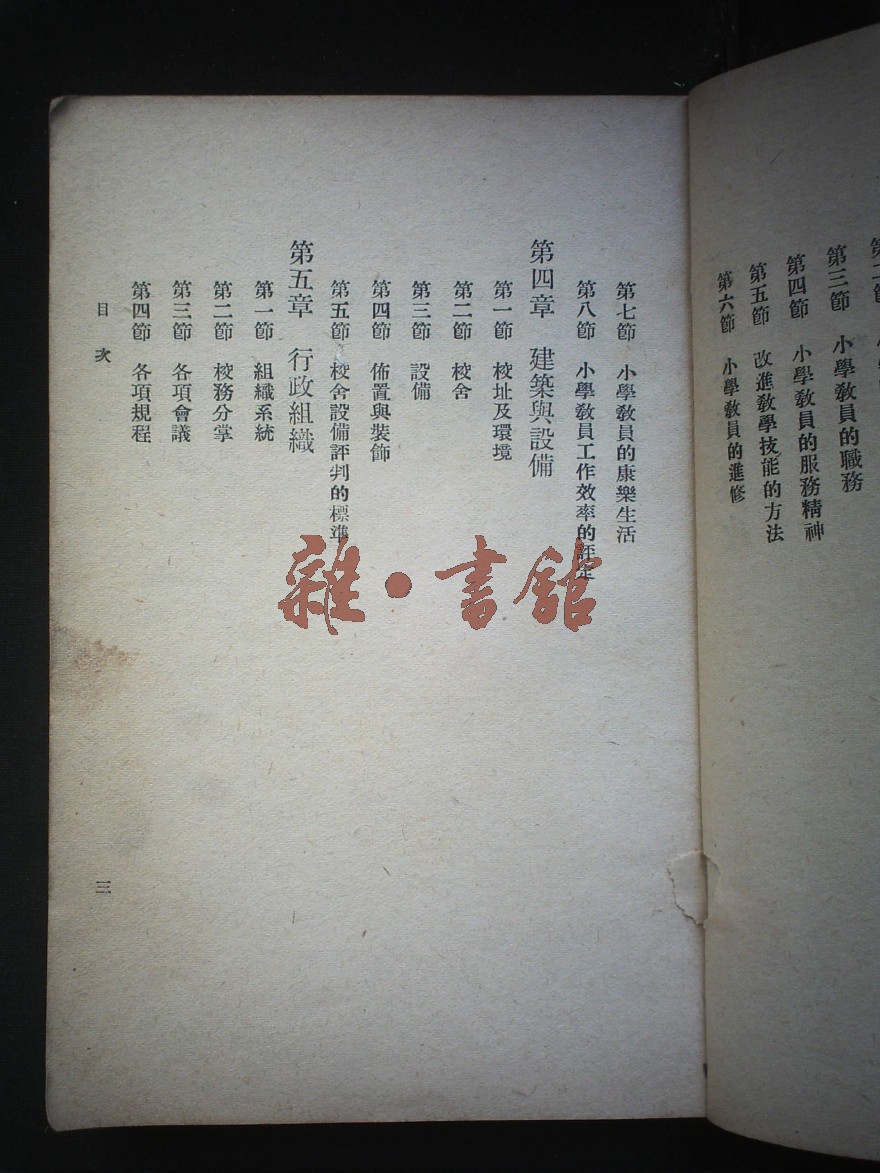 第三節　小學教員的職務
第四節　小學教員的服務精神
第五節　改進教學技能的方法
第六節　小學教員的進修
第七節　小學教員的康樂生活
第八節　小學教員工作效率的評定
第四章　建築與設備
第一節　校址及環境
第二節　校舍
第三節　設備
第四節　佈置與裝飾
第五節　校舍設備評判的標準
第五章　行政組織
第一節　組織系統
第二節　校務分掌
第三節　各項會議
第四節　各項規程
目次
三
雜·書館